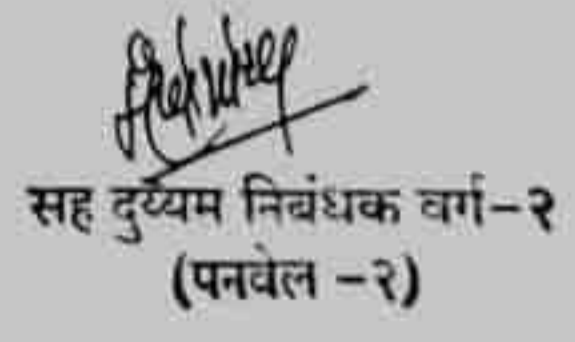 सह दुय्यम निबंधक वर्ग-२
(पनवेल -२)